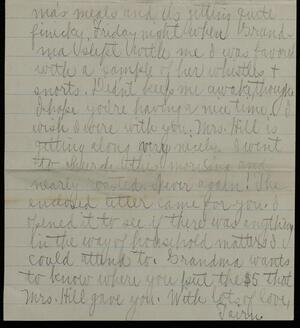 ma's meals and is getting quite
finicky. Friday night when Grand-
ma slept with me I was favored
with a sample of her whistles +
snorts. Didnt keep me awake, though
I hope you're having a nice time. I
wish I were with you. Mrs. Hill is
getting along very nicely. I went
to church this morning and
nearly roasted. Never again! The
enclosed letter came for you. I
opened it to see if there was anything
in the way of household matters I
could attend to. Grandma wants
to know where you put the $5 that
Mrs. Hill gave you. With lots of love,